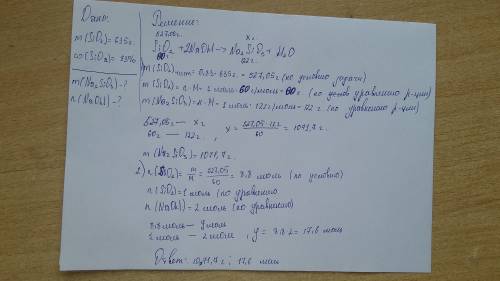 Дано:
m(SiO₂) = 635г.
ω(SiO₂) = 83%
m(Na₂SiO₃) - ?
n(NaOH) - ?
Решение:
527,05г. x г
SiO₂ + 2NaOH → Na₂SiO₃ + H₂O
60г 122г.
m(SiO₂) = 0,83·635г = 527,05г (по условию задачи)
m(SiO₂) = n·M = 1 моль·60г/моль = 60г (по уравнению р-ции)
m(Na₂SiO₃) = n·M = 1 моль·122г/моль = 122г (по уравнению р-ции)
527,05 — x
60г — 122г. , x = 527,05·122/60 = 1071,7г.
m(Na₂SiO₃) = 1071,7г.
2) n(SiO₂) = m/M = 527,05/60 = 8.8 моль (по условию)
n(SiO₂) = 1 моль (по уравнению
n(NaOH) = 2 моль (по уравнению)
8.8 моль — y моль
1 моль — 2 моль , y = 8.8·2 = 17,6 моль
Ответ: 1071,7г; 17,6 моль